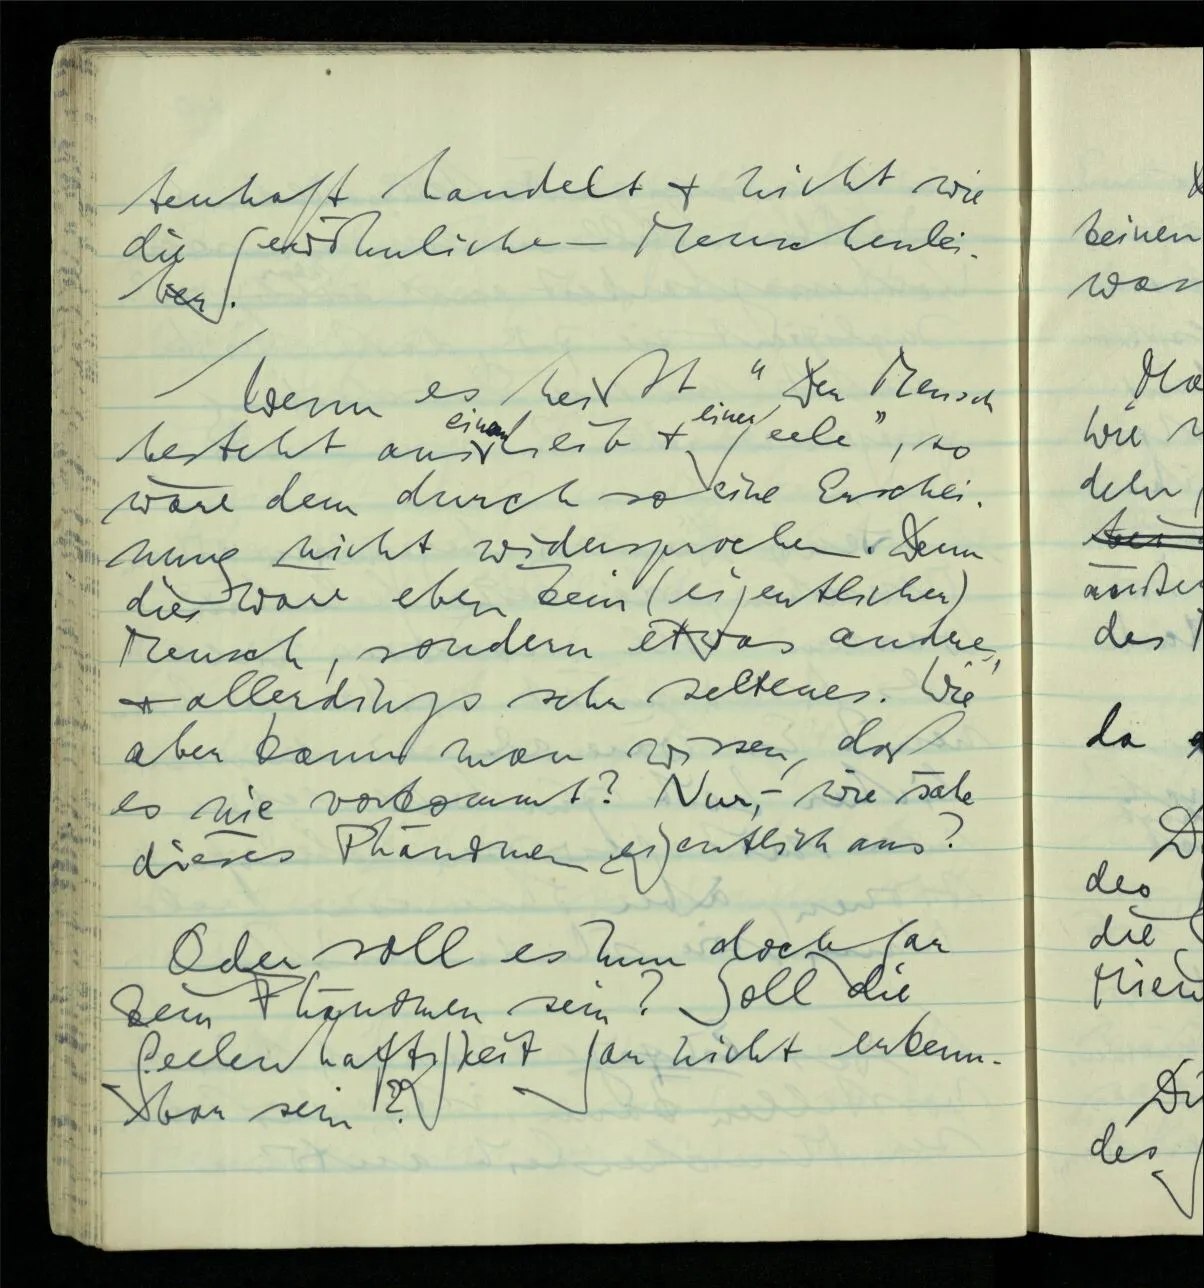 tenhaft handelt + nicht wie
die gewöhnliche – Menschenlei-
ber.
Wenn es heißt "Der Mensch
besteht aus einem Leib + einer Seele", so
wäre dem durch so eine Erschei-
nung nicht widersprochen. Denn
dies wäre eben kein (eigentlicher)
Mensch, sondern etwas andres,
+ allerdings sehr seltenes. Wie
aber kann man wissen, daß
es nie vorkommt? Nur, – wie sähe
dieses Phänomen eigentlich aus?
Oder soll es nun doch gar
kein Phänomen sein? Soll die
Seelenhaftigkeit gar nicht erkenn-
bar sein?
keinen
was
wie
des
da
Di
des
die
Di
des